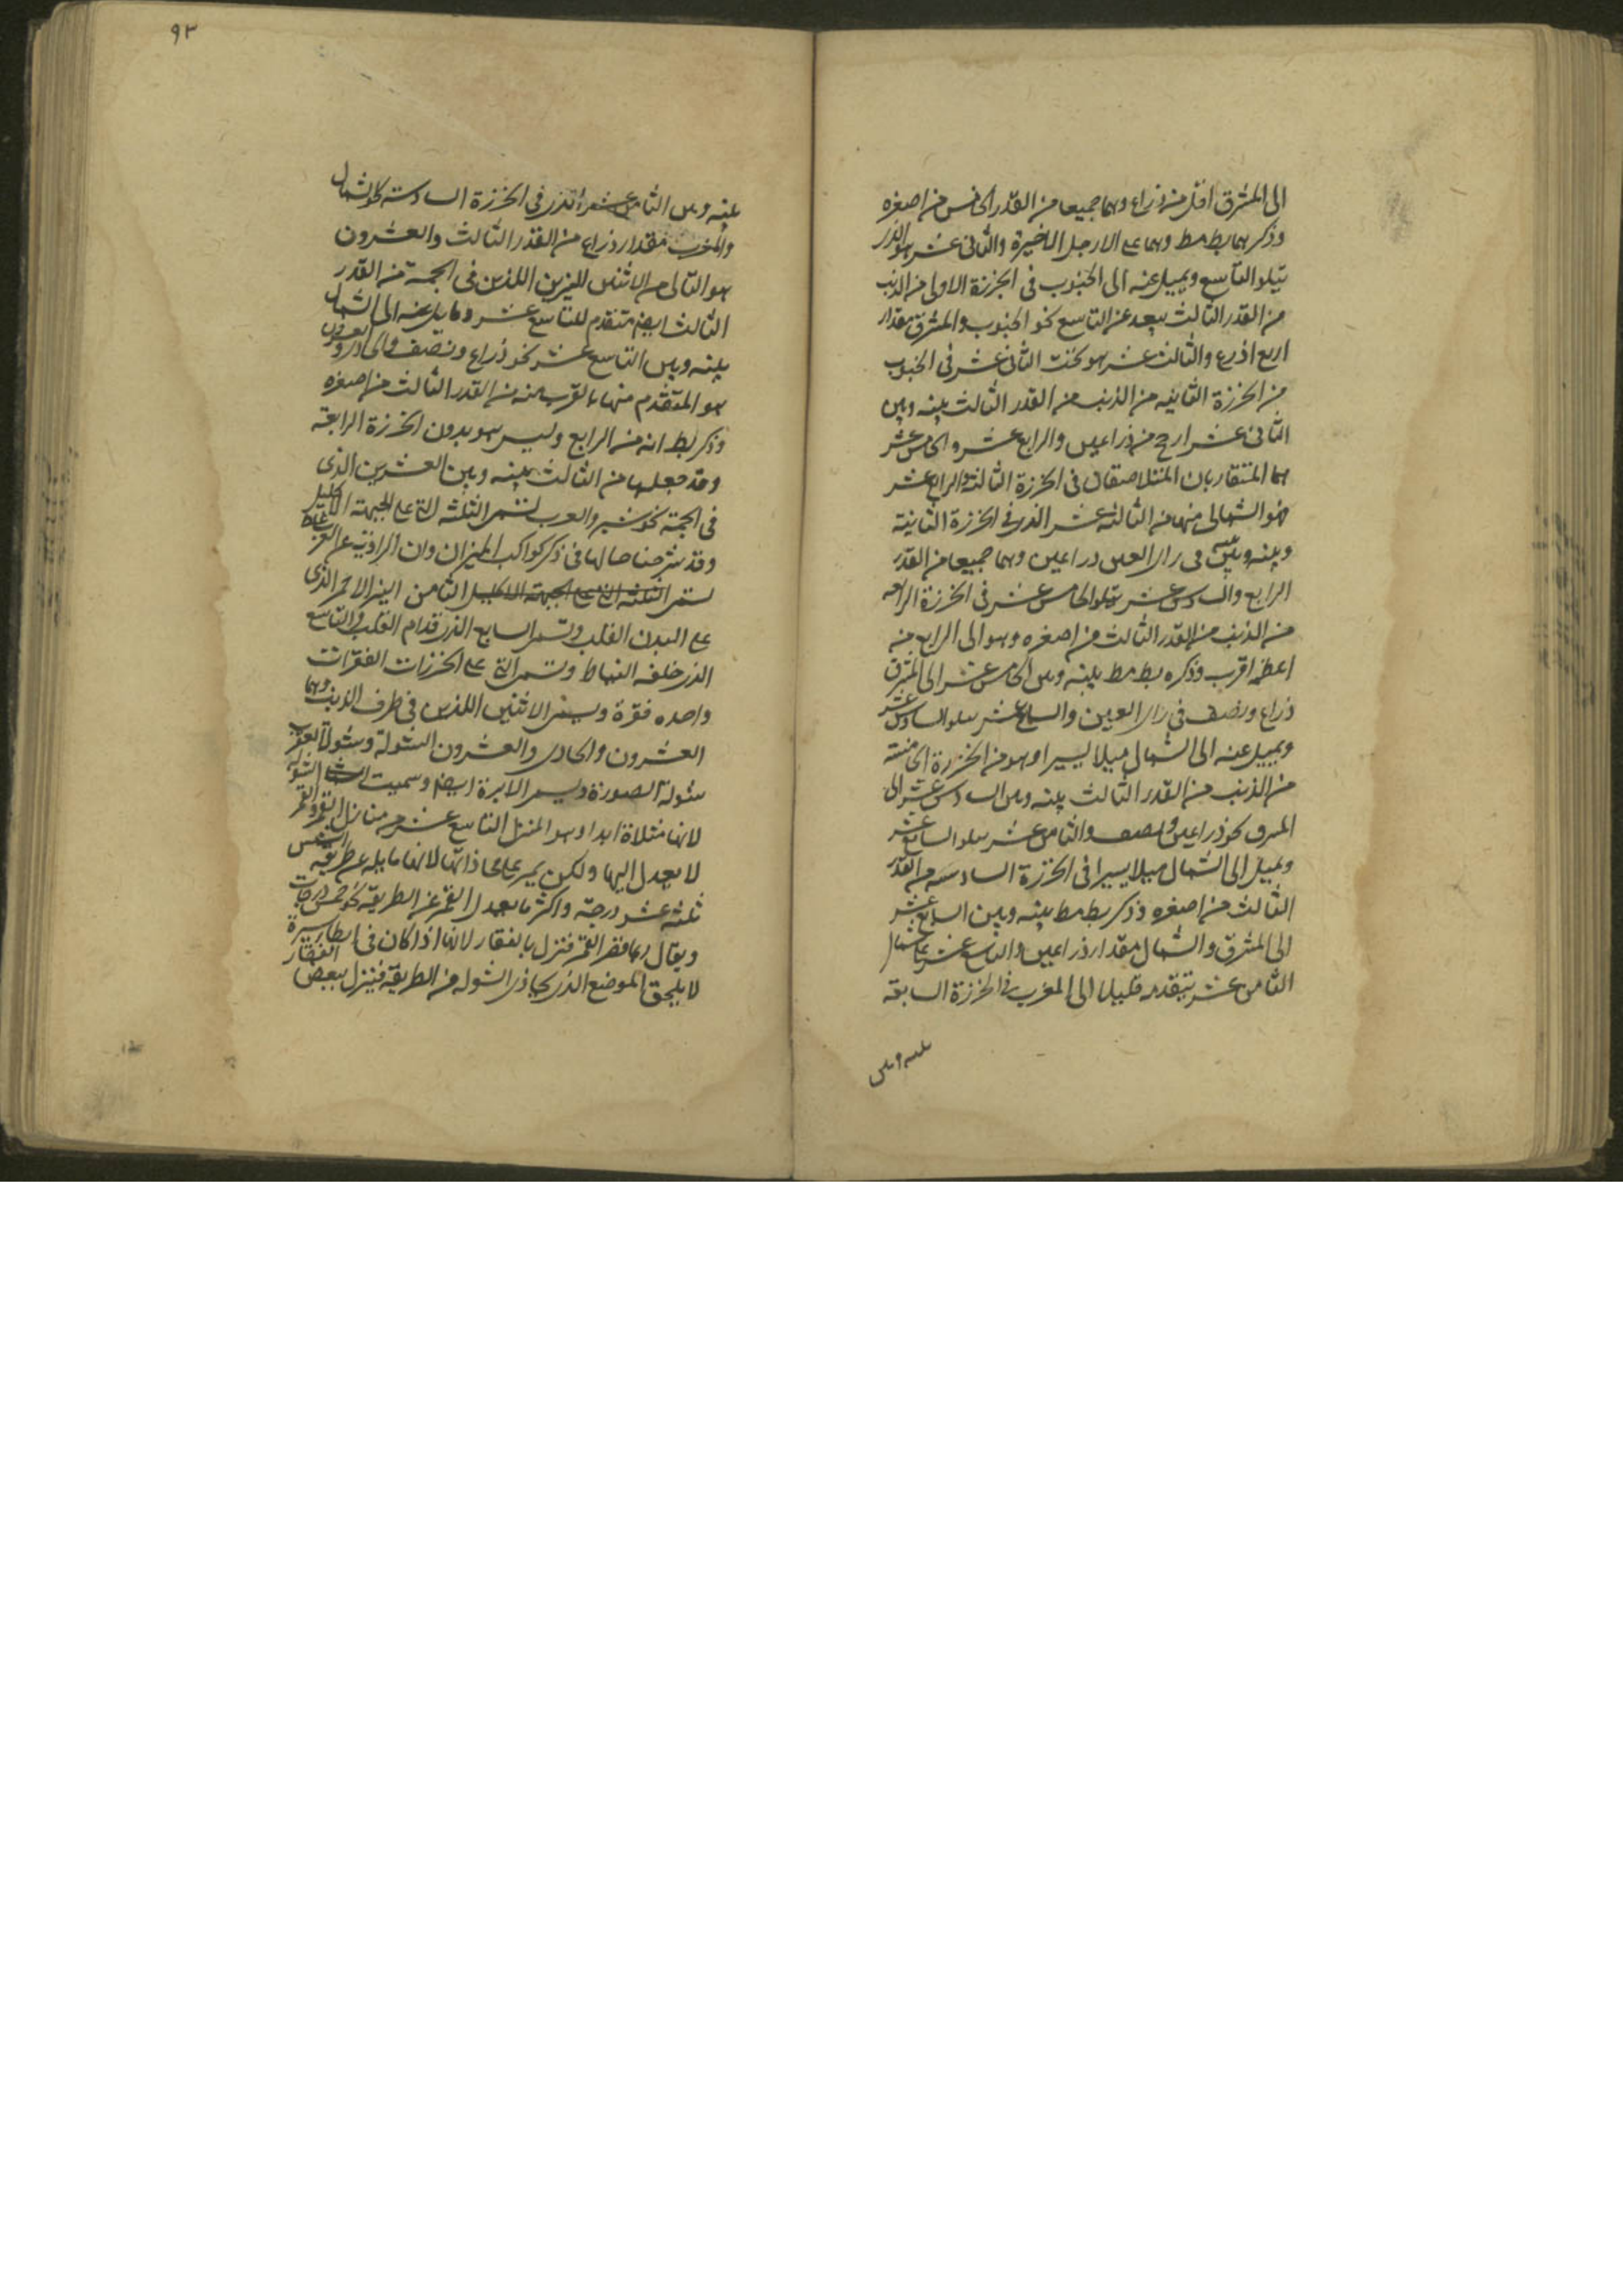 الى المشرق اقل من ذراع وهما جميعا من القدر الخامس من اصغره
وذكرهما بطلميوس وهما على الارجل الاخيرة والثانى عشر هو الذى
يتلو التاسع ويميل عنه الى الجنوب فى الخرزة الاولى من الذنب
من القدر الثالث يبعد عن التاسع نحو الجنوب والمشرق مقدار
اربع اذرع والثالث عشر هو تحت الثانى عشر فى الجنوب
من الخرزة الثانيه من الذنب من القدر الثالث بينه وبين
الثانى عشر ارجح من ذراعين والرابع عشر والخامس عشر
هما المتقاربان المتلاصقان فى الخرزة الثالثة والرابع عشر
هو الشمالى منهما من الثالث عشر الذى فى الخرزة الثانية
وبينه وبين فى راى العين ذراعين وهما جميعا من القدر
الرابع والسادس عشر يتلو الخامس عشر فى الخرزة الرابعه
من الذنب من القدر الثالث من اصغره وهو الى الرابع منه
اعظمه اقرب وذكره بط مط بينه وبين الخامس عشر الى المشرق
ذراع ونصف فى راى العين والسابع عشر يتلو السادس عشر
ويميل عنه الى الشمال ميلا يسيرا وهو من الخرزة الخامسة
من الذنب من القدر الثالث بينه وبين السادس عشر الى
المشرق نحو ذراعين ونصف والثامن عشر يتلو السابع عشر
ويميل الى الشمال ميلا يسيرا فى الخرزة السادسه من القدر
الثالث من اصغره وذكر بط مط بينه وبين السابع عشر
الى المشرق والشمال مقدار ذراعين والتاسع عشر على شمال
الثامن عشر يتقدمه قليلا الى المغرب فى الخرزة السابعة
بينه وبين
٩٣
بينه وبين الثامن عشر الذى فى الخرزة السادسة نحو الشمال
والمغرب مقدار ذراع من القدر الثالث والعشرون
هو التالى من الاثنين النيرين اللذين فى الحمة من القدر
الثالث ايضا متقدم للتاسع عشر ومايل عنه الى الشمال
بينه وبين التاسع عشر نحو ذراع ونصف والحادى والعشرون
هو المتقدم منهما بالقرب منه من القدر الثالث من اصغره
وذكر بط انه من الرابع وليس هو بدون الخرزة الرابعة
وقد جعلها من الثالث بينه وبين العشرين الذى
فى الحمة نحو شبر والعرب تسمى الثلثة التى على الجبهة الاكليل
وقد شرحنا حالها فى ذكر كواكب الميزان وان الرواية عن العرب غلط
تسمى الثلثة التى على الجبهة الاكليل الثامن النير الاحمر الذى
على البدن القلب وتسمى السابع الذى قدام القلب والتاسع
الذى خلفه النياط وتسمى التى على الخرزات الفقرات
واحده فقرة ويسمى الاثنين اللذين فى طرف الذنب وهما
العشرون والحادى والعشرون الشولة وشولة العقرب
شولة الصورة ويسمى الابرة ايضا وسميت الشولة
لانها مشالة ابدا وهو المنزل التاسع عشر من منازل القمر والقمر
لا يعدل اليها ولكن يمر على محاذاتها لانها مايله عن طريقة الشمس
ثلثة عشر درجة واكثر ما يعدل القمر عن الطريقة نحو خمس درجات
ويقال ربما قصر القمر فنزل بالفقار لانها اذا كان فى ابطا سيره
لا يلحق الموضع الذى يحاذى الشوله من الطريقة فينزل ببعض الفقار